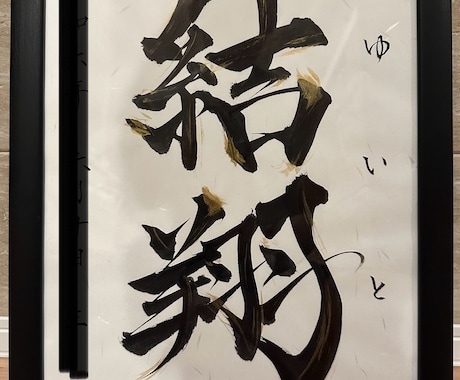 結翔
ゆいと